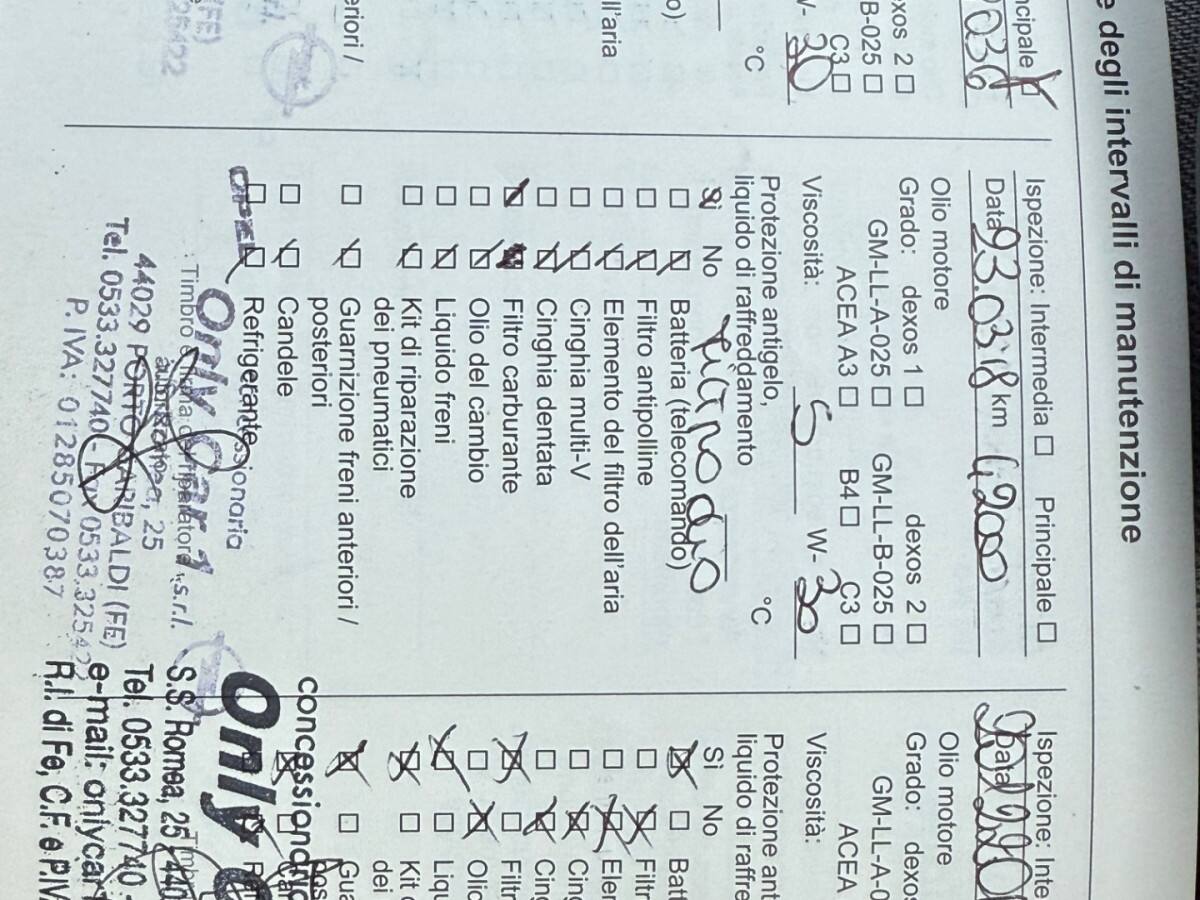 e degli intervalli di manutenzione
ncipale
036
exos 2
B-025
C3
W- 30
°C
o)
ll'aria
eriori /
s.r.l.
(FE)
25422
Ispezione: Intermedia Principale
Data 23.03.18 km 42000
Olio motore
Grado: dexos 1 dexos 2
GM-LL-A-025 GM-LL-B-025
ACEA A3 B4 C3
Viscosità: 5 W- 30
Protezione antigelo,
liquido di raffreddamento °C
Sì No
Batteria (telecomando)
Filtro antipolline
Elemento del filtro dell'aria
Cinghia multi-V
Cinghia dentata
Filtro carburante
Olio del cambio
Liquido freni
Kit di riparazione
dei pneumatici
Guarnizione freni anteriori /
posteriori
Candele
Refrigerante
OPEL
Only Car 1 s.r.l.
44029 PORTO GARIBALDI (FE)
Tel. 0533.327740 - F 0533.32542
P. IVA: 01285070387
Ispezione: Inte
Data
Olio motore
Grado: dexos
GM-LL-A-0
ACEA
Viscosità:
Protezione ant
liquido di raffre
Sì No
Batt
Filtr
Elen
Cing
Cing
Filtr
Olio
Liqu
Kit d
dei
Gua
pos
Can
Ref
concessionar
Only
S.S. Romea, 25 440
Tel. 0533.327740 -
e-mail: onlycar1
R.I. di Fe, C.F. e P.IV